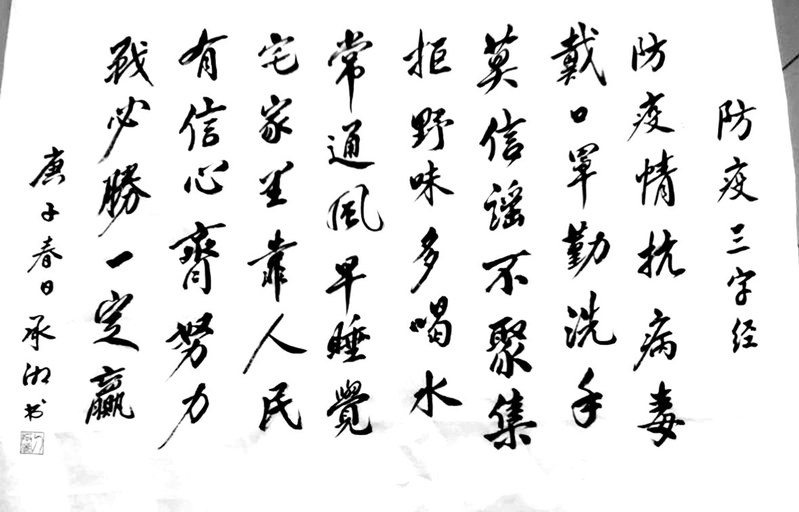 防疫三字经
防疫情抗病毒
戴口罩勤洗手
莫信謡不聚集
拒野味多喝水
常通风早睡覺
宅家里靠人民
有信心齊努力
戰必勝一定贏
庚子春日承湖书